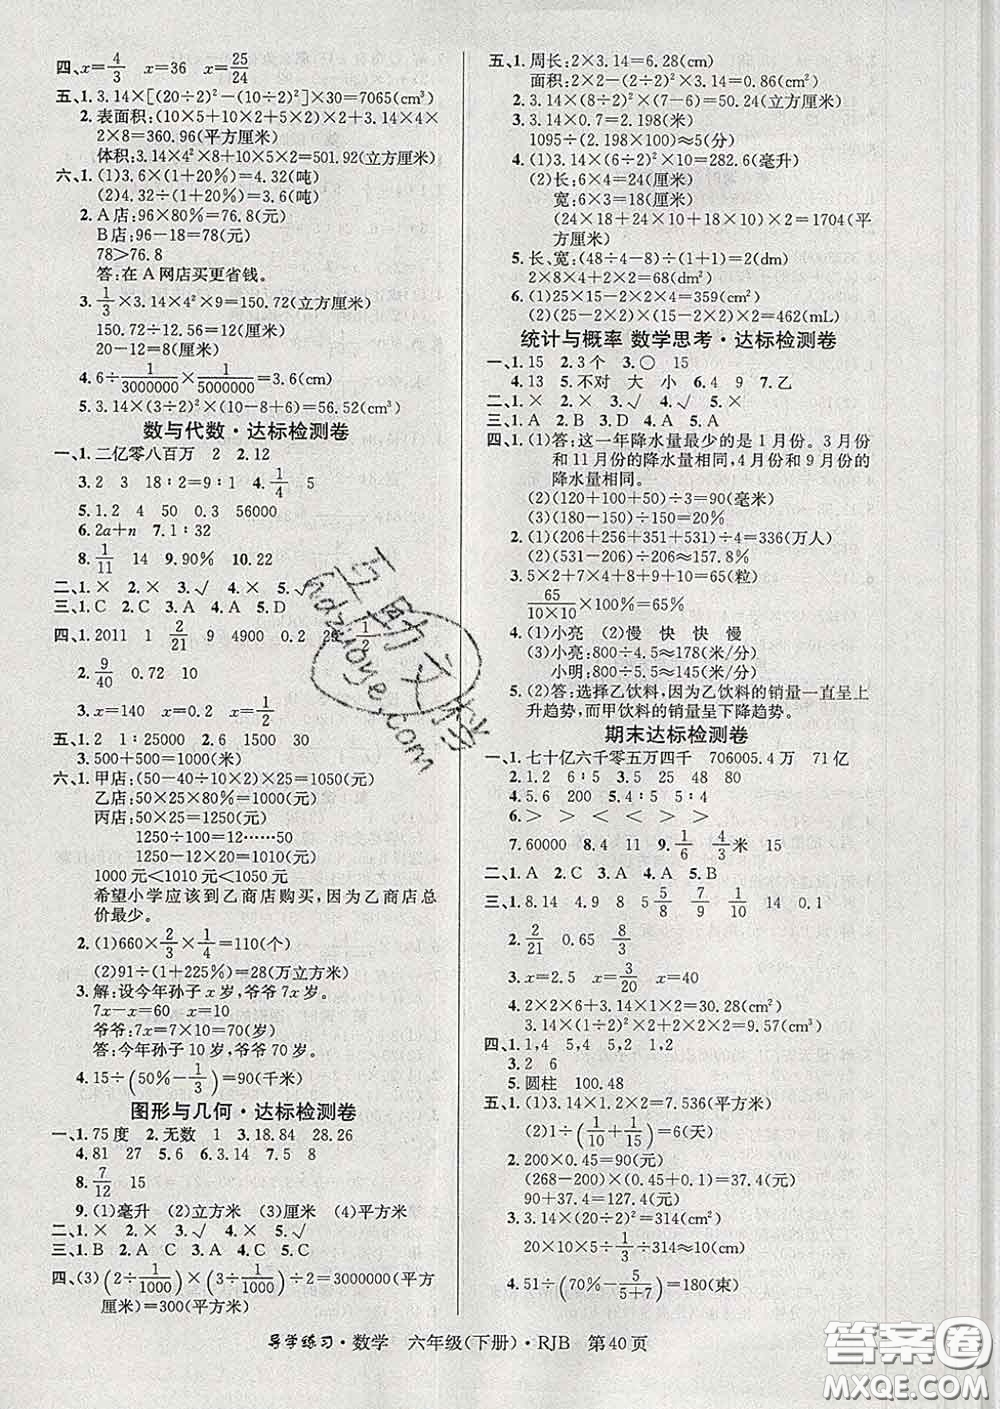 四、x=4/3 x=36 x=25/24
五、1.3.14×[(20÷2)²-(10÷2)²]×30=7065(cm³)
2.表面积:(10×5+10×2+5×2)×2+3.14×4×
2×8=360.96(平方厘米)
体积:3.14×4²×8+10×5×2=501.92(立方厘米)
六、1.(1)3.6×(1+20%)=4.32(吨)
(2)4.32÷(1+20%)=3.6(吨)
2.A店:96×80%=76.8(元)
B店:96-18=78(元)
78>76.8
答:在A网店买更省钱。
3.1/3×3.14×4²×9=150.72(立方厘米)
150.72÷12.56=12(厘米)
20-12=8(厘米)
4.6÷1/3000000×1/5000000=3.6(厘米)
5.3.14×(3÷2)²×(10-8+6)=56.52(cm³)
数与代数·达标检测卷
一、1.二亿零八百万 2 2.12
3.2 3 18∶2=9∶1 4.1/4 5
5.1.2 4 50 0.3 56000
6.2a+n 7.1∶32
8.1/11 14 9.90% 10.22
二、1.× 2.× 3.√ 4.× 5.√
三、1.C 2.C 3.A 4.A 5.D
四、1.2011 1 2/21 9 4900 0.2 29 1/2
2.9/40 0.72 10
3.x=140 x=0.2 x=1/2
五、1.2 1∶25000 2.6 150
3.500+500=1000(米)
六、1.甲店:(50-40÷10×2)×25=1050(元)
乙店:50×25×80%=1000(元)
丙店:50×25=1250(元)
1250÷100=12……50
1250-12×20=1010(元)
1000元<1010元<1050元
希望小学应该到乙商店购买,因为乙商店总
价最少。
2.(1)660×2/3×1/4=110(个)
(2)91÷(1+225%)=28(万立方米)
3.解:设今年孙子x岁,爷爷7x岁。
7x-x=60 x=10
爷爷:7x=7×10=70(岁)
答:今年孙子10岁,爷爷70岁。
4.15÷(50%-1/3)=90(千米)
图形与几何·达标检测卷
一、1.75度 2.无数 1 3.18.84 28.26
4.81 27 5.6 6.3∶14 7.5 8
8.7/12 15
9.(1)毫升 (2)立方米 (3)厘米 (4)平方米
二、1.× 2.× 3.√ 4.√ 5.×
三、1.B 2.A C 3.A 4.C 5.D
四、(3)(2÷1/1000)×(3÷1/1000)÷2=3000000(平方
厘米)=300(平方米)
五、1.周长:2×3.14=6.28(cm)
面积:2×2-(2÷2)²×3.14=0.86(cm²)
2.3.14×(8÷2)²×(7-6)=50.24(立方厘米)
3.3.14×0.7=2.198(米)
1095÷(2.198×100)≈5(分)
4.(1)3.14×(6÷2)²×10=282.6(毫升)
(2)长:6×4=24(厘米)
宽:6×3=18(厘米)
(24×18+24×10+18×10)×2=1704(平
方厘米)
5.长、宽:(48÷4-8)÷(1+1)=2(dm)
2×8×4+2×2=68(dm²)
6.(1)25×15-2×2×4=359(cm²)
(2)(25-2×2)×(15-2×2)×2=462(mL)
统计与概率 数学思考·达标检测卷
一、1.15 2.3个 3.○ 15
4.13 5.不对 大 小 6.4 9 7.乙
二、1.× 2.× 3.√ 4.√ 5.×
三、1.A 2.B 3.D 4.A 5.A
四、1.(1)答:这一年降水量最少的是1月份。3月份
和11月份的降水量相同,4月份和9月份的
降水量相同。
(2)(120+100+50)÷3=90(毫米)
(3)(180-150)÷150=20%
2.(1)(206+256+351+531)÷4=336(万人)
(2)(531-206)÷206≈157.8%
3.5×2+7+4+8×4+6×2=65(粒)
65/10×10×100%=65%
4.(1)小亮 (2)慢 快 快 慢
(3)小亮:800÷4.5≈178(米/分)
小明:800÷5.5≈145(米/分)
5.(2)答:选择乙饮料,因为乙饮料的销量一直呈上
升趋势,而甲饮料的销量呈下降趋势。
期末达标检测卷
一、1.七十亿六千零五万四千 706005.4万 71亿
2.1.2 6∶5 3.5 25 48 80
4.5.6 200 5.4∶5 4∶5
6.< > > < > >
7.60000 8.30 9.4 1/6 4/3米 15
二、1.A 2.C 3.A 4.A 5.B
三、1.8.14 4.9 8 5 5/8 7/9 1/10 14 0.1
2.2/21 0.65 8/3
3.x=2.5 x=3/20 x=40
4.2×2×6+3.14×1×2=30.28(cm²)
3.14×(1÷2)²×2+2×2×2=9.57(cm³)
四、1.1,4 5,4 2.5,2 1,2
3.2 6
5.圆柱 100.48
五、1.(1)3.14×1.2×2=7.536(平方米)
(2)1÷(1/10+1/15)=6(天)
2.200×0.45=90(元)
(268-200)×(0.45+0.1)=37.4(元)
90+37.4=127.4(元)
3.3.14×(20÷2)²=314(cm²)
20×10×5÷1/3÷314≈10(cm)
4.51÷(70%-5/5+7)=180(束)
导学练习·数学 六年级(下册)·RJB 第40页
互助文档
hdzuoye.com
答案圈
MXQE.COM